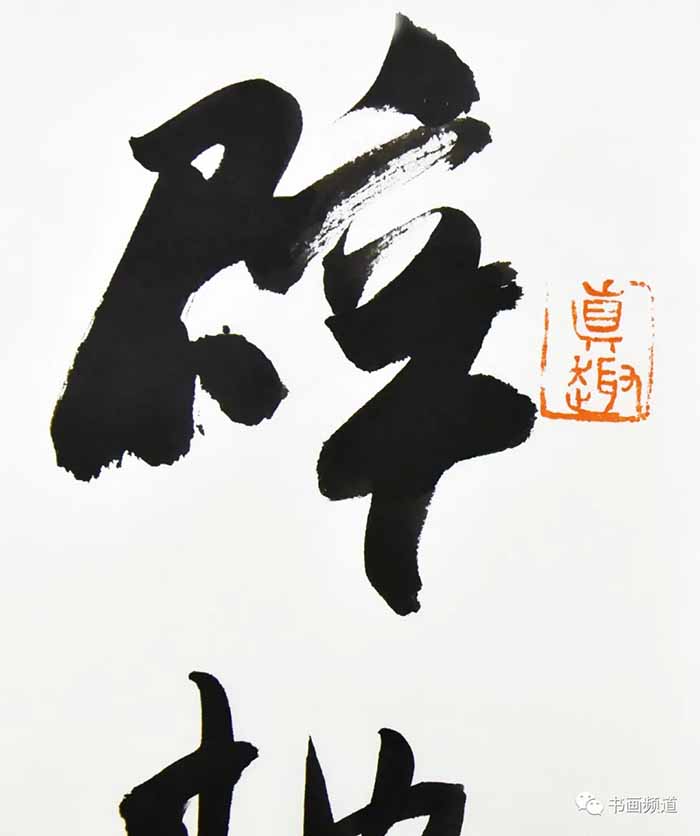 辟
真趣
书画频道